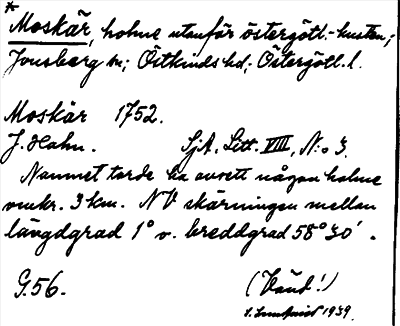 * Moskär, holme utanför östergötl.-kusten;
Jonsberg sn; Östkinds hd, Östergötl. l.
Moskär 1752.
J. Hahn. SjA, Litt. VIII, N:o 3.
Namnet torde ha avsett någon holme
omkr. 3 km. NV skärningen mellan
längdgrad 1° v. breddgrad 58°30'.
G.56. (Vänd!)
S. Lundqvist 1939.